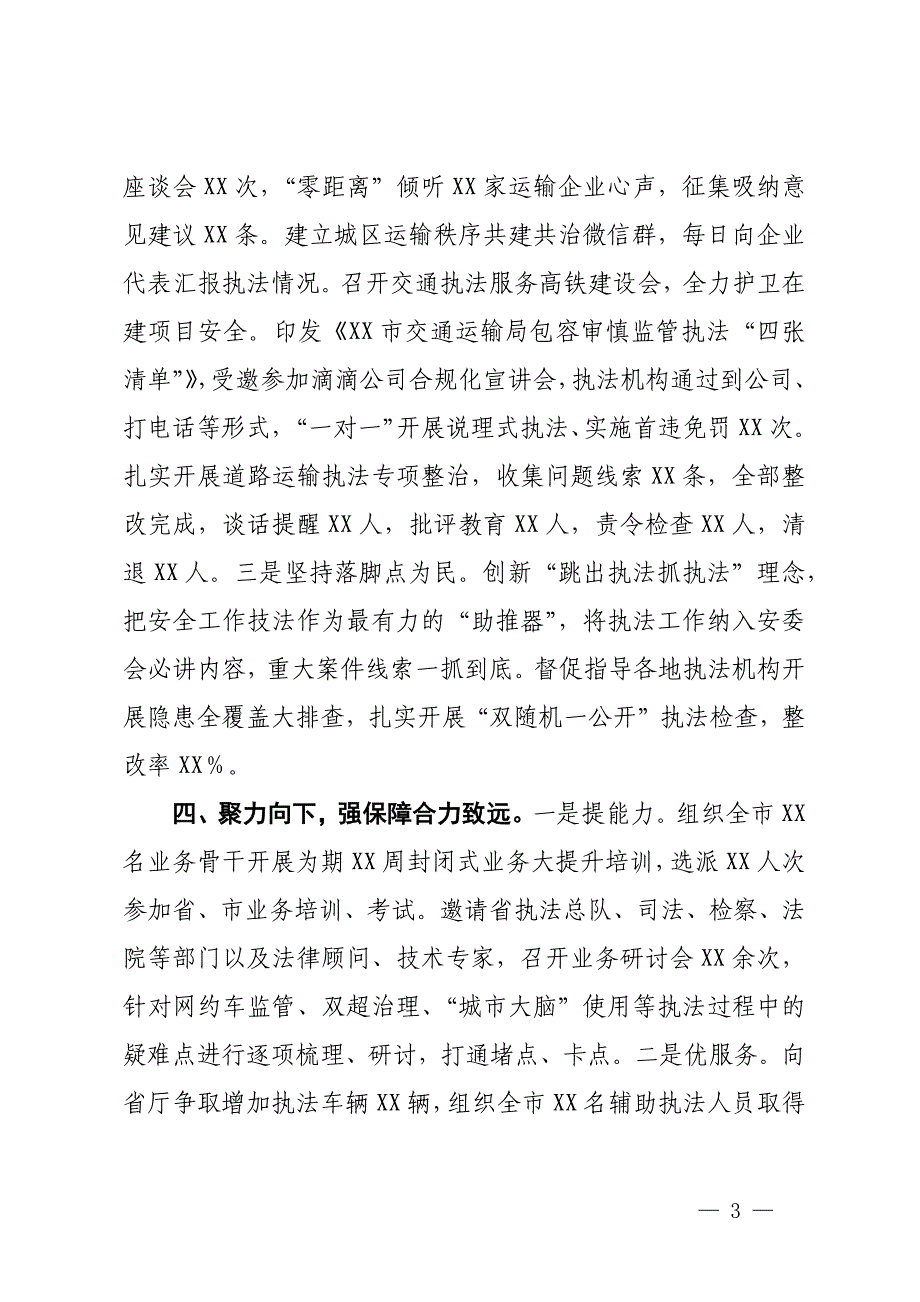 座谈会 XX 次，“零距离”倾听 XX 家运输企业心声，征集吸纳意
见建议 XX 条。建立城区运输秩序共建共治微信群，每日向企业
代表汇报执法情况。召开交通执法服务高铁建设会，全力护卫在
建项目安全。印发《XX 市交通运输局包容审慎监管执法“四张
清单”》，受邀参加滴滴公司合规化宣讲会，执法机构通过到公司、
打电话等形式，“一对一”开展说理式执法、实施首违免罚 XX 次。
扎实开展道路运输执法专项整治，收集问题线索 XX 条，全部整
改完成，谈话提醒 XX 人，批评教育 XX 人，责令检查 XX 人，清
退 XX 人。三是坚持落脚点为民。创新“跳出执法抓执法”理念，
把安全工作技法作为最有力的“助推器”，将执法工作纳入安委
会必讲内容，重大案件线索一抓到底。督促指导各地执法机构开
展隐患全覆盖大排查，扎实开展“双随机一公开”执法检查，整
改率 XX%。
四、聚力向下，强保障合力致远。一是提能力。组织全市 XX
名业务骨干开展为期 XX 周封闭式业务大提升培训，选派 XX 人次
参加省、市业务培训、考试。邀请省执法总队、司法、检察、法
院等部门以及法律顾问、技术专家，召开业务研讨会 XX 余次，
针对网约车监管、双超治理、“城市大脑”使用等执法过程中的
疑难点进行逐项梳理、研讨，打通堵点、卡点。二是优服务。向
省厅争取增加执法车辆 XX 辆，组织全市 XX 名辅助执法人员取得
— 3 —